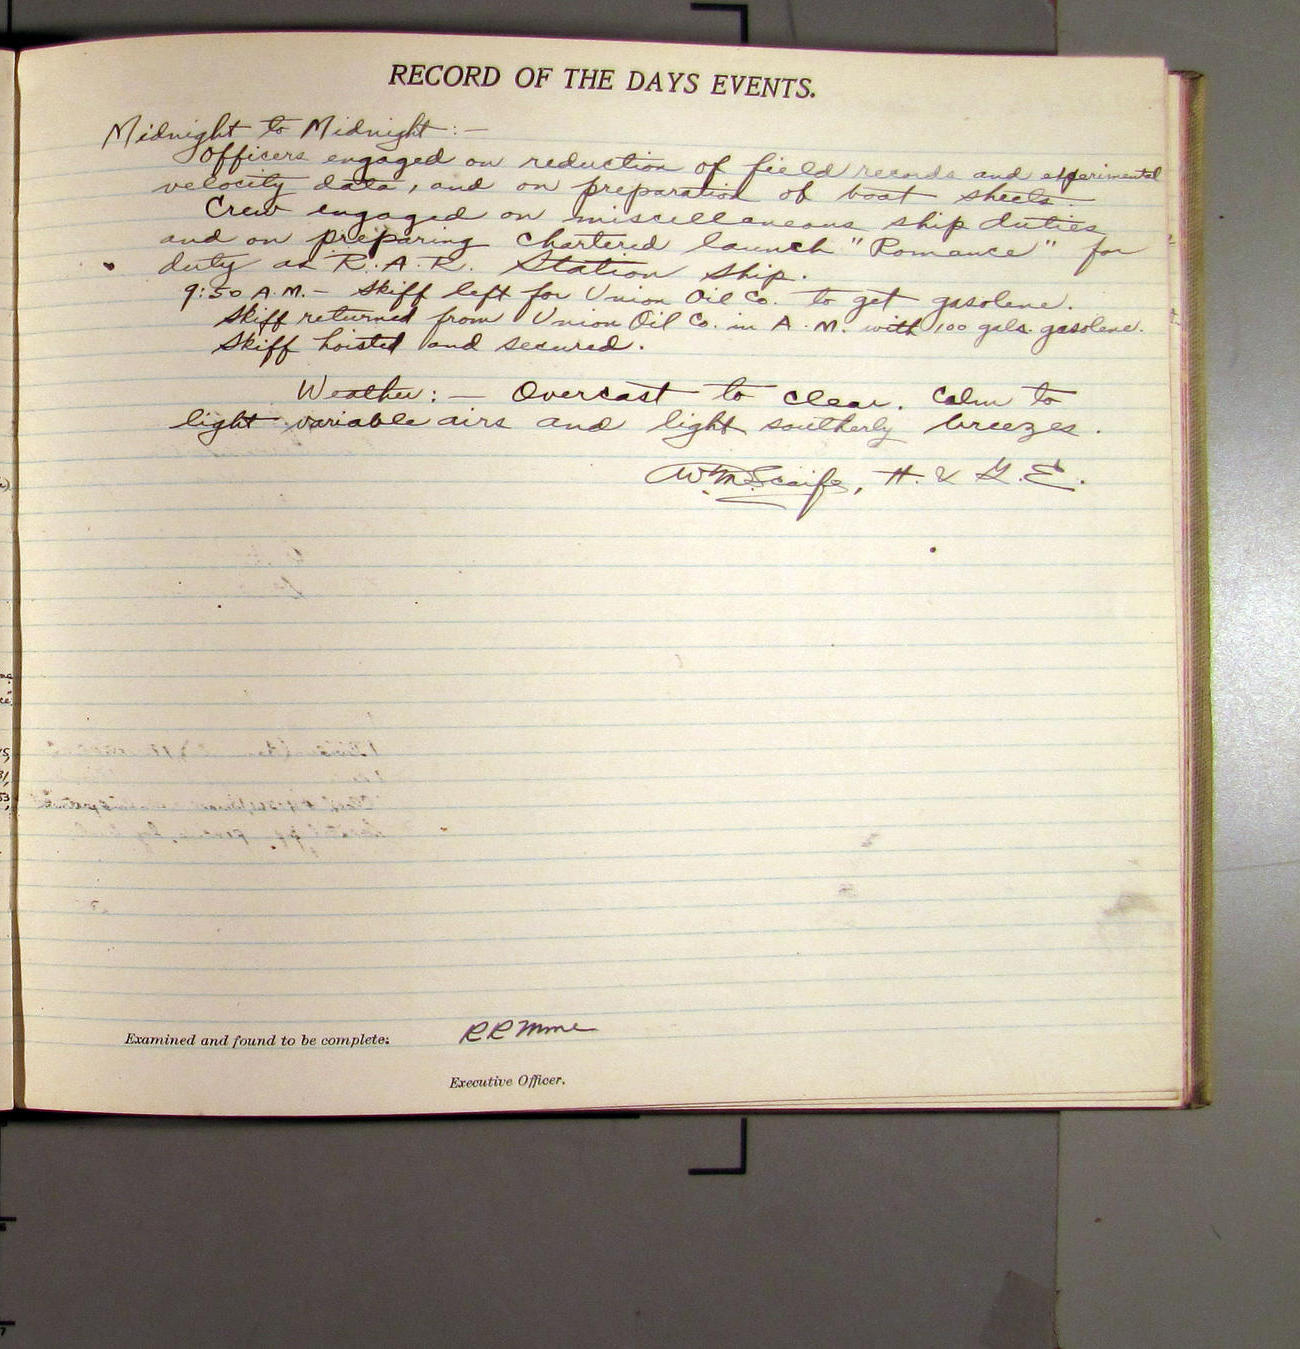 RECORD OF THE DAYS EVENTS.
Midnight to Midnight:-
Officers engaged on reduction of field records and experimental
velocity data, and on preparation of boat sheets.
Crew engaged on miscellaneous ship duties
and on preparing chartered launch "Romance" for
duty as R.A.R. Station ship.
9:50 A.M. - Skiff left for Union Oil Co. to get gasolene.
Skiff returned from Union Oil Co. in A.M. with 100 gals. gasolene.
Skiff hoisted and secured.
Weather: - Overcast to clear. Calm to
light variable airs and light southerly breezes.
Wm. Scaife, H. & G.E.
Examined and found to be complete:
Executive Officer.